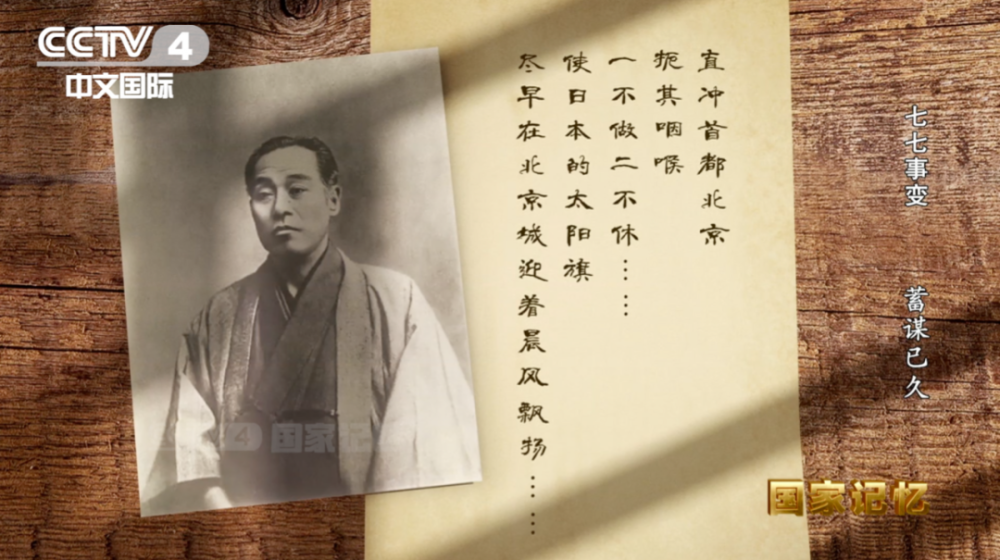 CCTV 4
中文国际
直冲首都北京
扼其咽喉
一不做二不休……
使日本的太阳旗
尽早在北京城迎着晨风飘扬……
七七事变 蓄谋已久
4 国家记忆
国家记忆